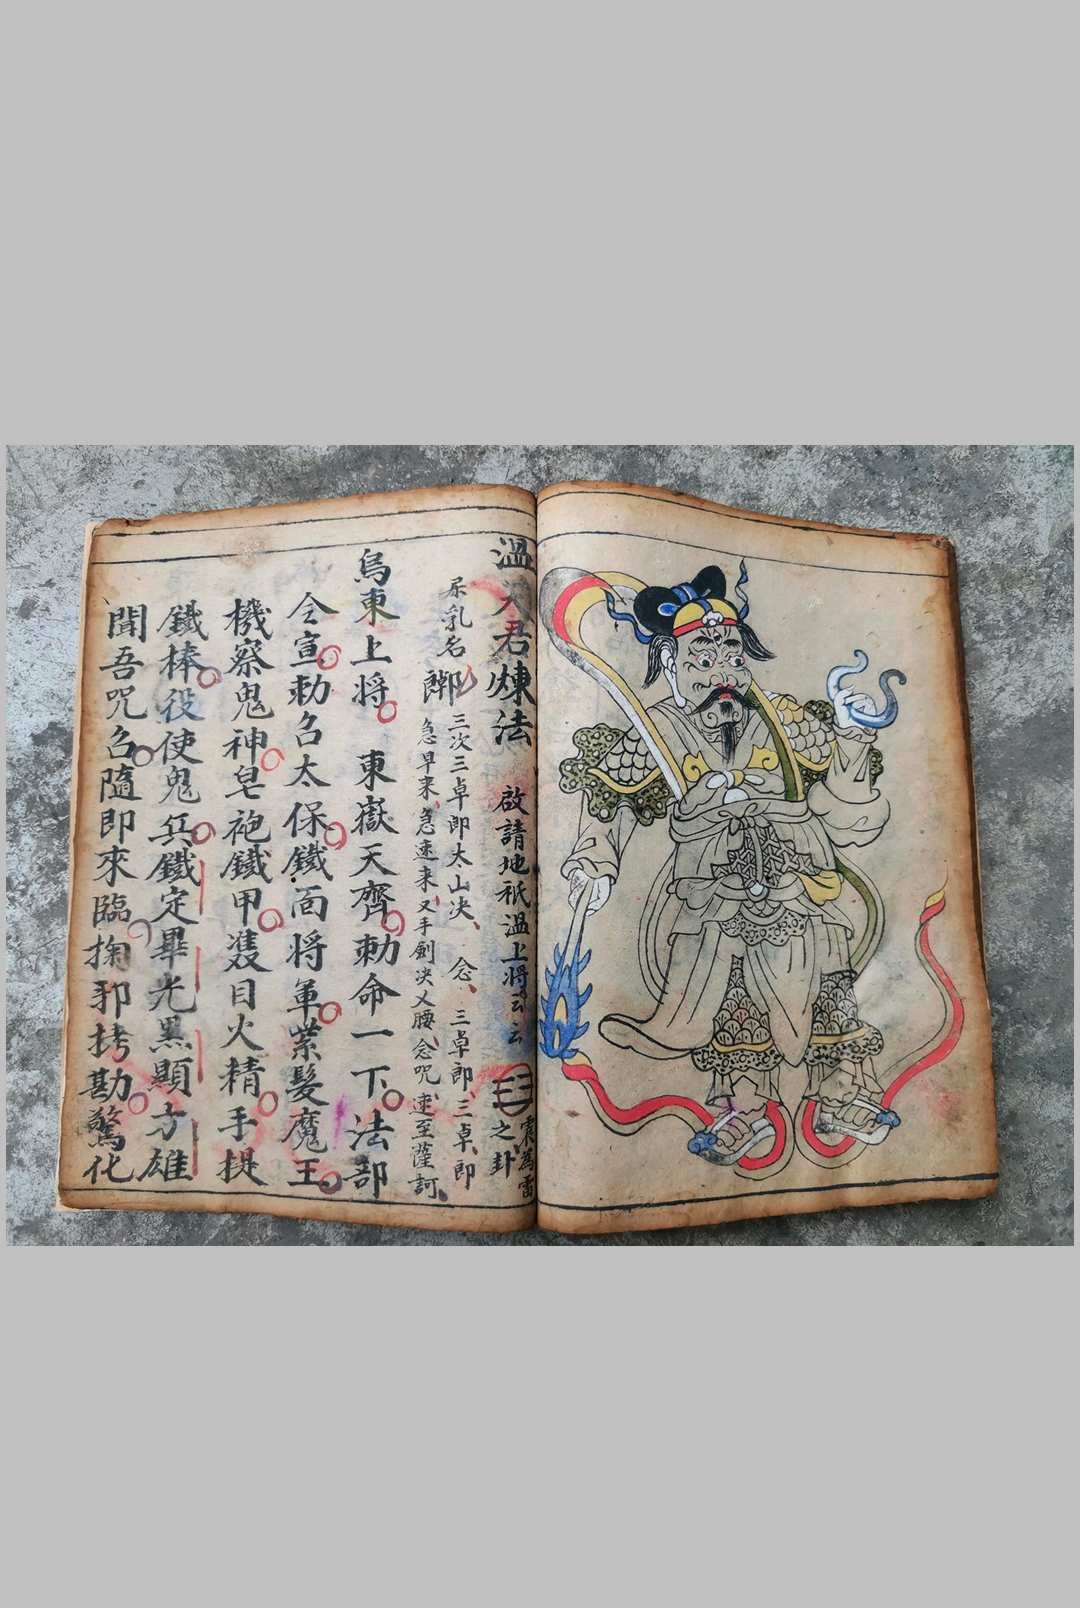 溫天君煉法 啟請地祇溫上將云云 ☳之卦 震為雷
乳名
三次三卓即太山决、念、三卓即、三卓、即
急早来、急速来、又手劍决又腰、念呪、速至薩訶、
烏東上将。東嶽天齊。勅命一下。法部
令宣。勅召太保。鐵面将軍。藂髮魔王。
機察鬼神。皂袍鐵甲。𨾏目火精。手捉
鐵棒。役使鬼兵。鐵定畢光黑顯方雄
聞吾呪召。隨即來臨。掬邪拷勘。驚化